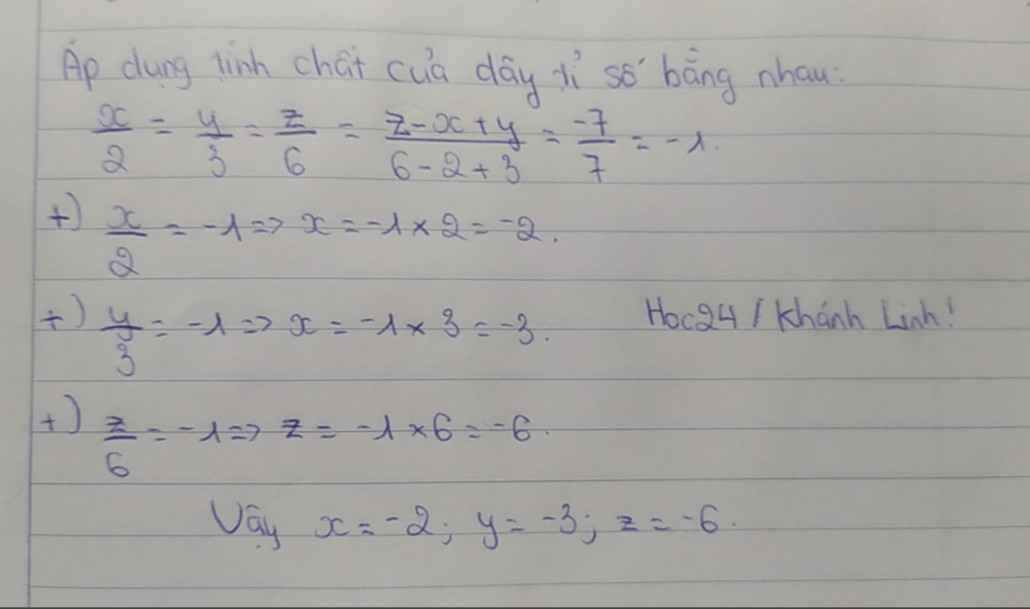 Áp dụng tính chất của dãy tỉ số bằng nhau:
x/2 = y/3 = z/6 = (z-x+y)/(6-2+3) = -7/7 = -1.
+) x/2 = -1 => x = -1 × 2 = -2.
+) y/3 = -1 => x = -1 × 3 = -3. Hoc24 / Khánh Linh!
+) z/6 = -1 => z = -1 × 6 = -6.
Vậy x = -2; y = -3; z = -6.